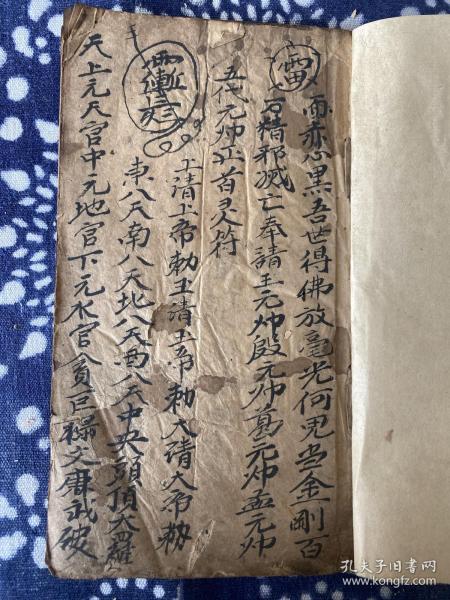 雷
面赤心黑吾世得佛放毫光何鬼当金剛百
万精邪滅亡奉請王元帅殷元帅葛元帅孟元帅
五代元帅正首灵符
上清上帝勅玉清玉帝勅大清大帝勅
東八天南八天北八天西八天中央八頭頂大羅
天上元天官中元地官下元水官貪巨禄文廉武破
孔夫子旧书网